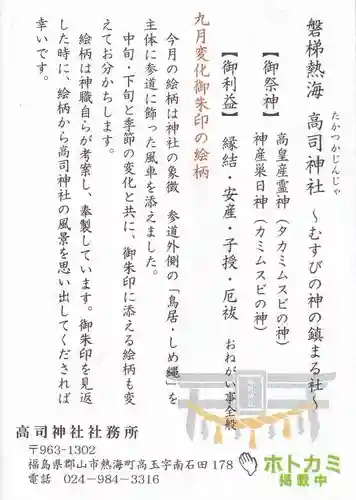 磐梯熱海 高司神社 ～むすびの神の鎮まる社～
たかつかじんじゃ
【御祭神】 高皇産霊神（タカミムスビの神）
神産巣日神（カミムスビの神）
【御利益】 縁結・安産・子授・厄祓 おねがい事全般
九月変化御朱印の絵柄
今月の絵柄は神社の象徴 参道外側の「鳥居・しめ縄」を
主体に参道に飾った風車を添えました。
中旬・下旬と季節の変化と共に、御朱印に添える絵柄も変
えてお分かちします。
絵柄は神職自らが考案し、奉製しています。御朱印を見返
した時に、絵柄から高司神社の風景を思い出してくだされば
幸いです。
高司神社社務所
〒963-1302
福島県郡山市熱海町高玉字南石田 178
電話 024-984-3316
ホトカミ
掲載中